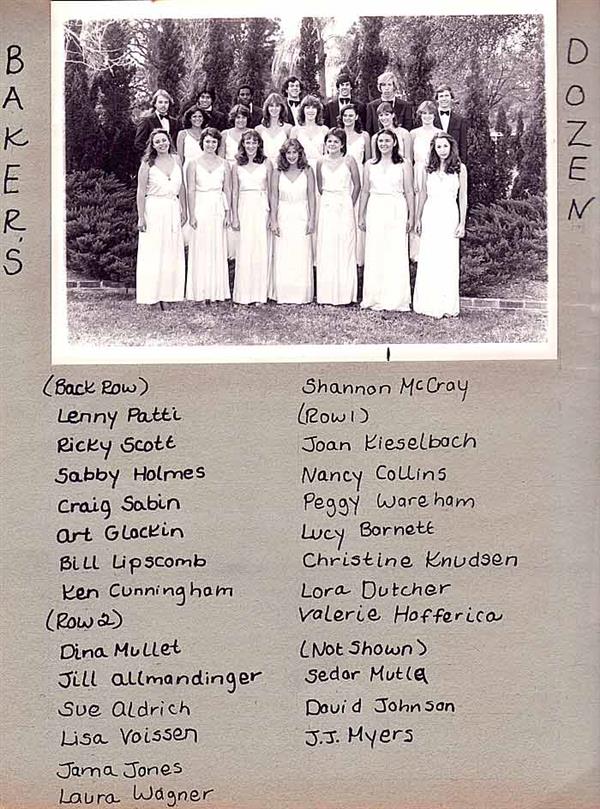 BAKER'S
DOZEN
(Back Row)
Lenny Patti
Ricky Scott
Sabby Holmes
Craig Sabin
Art Glockin
Bill Lipscomb
Ken Cunningham
(Row 2)
Dina Mullet
Jill Allmandinger
Sue Aldrich
Lisa Voissen
Jama Jones
Laura Wagner
Shannon McCray
(Row 1)
Joan Kieselbach
Nancy Collins
Peggy Wareham
Lucy Barnett
Christine Knudsen
Lora Dutcher
Valerie Hofferica
(Not Shown)
Sedar Mutla
David Johnson
J.J. Myers